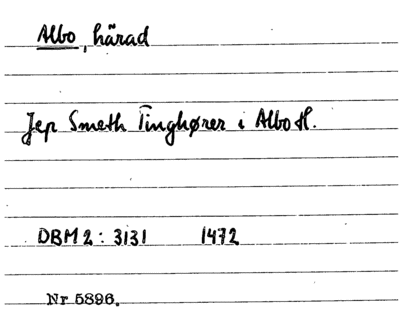 Albo, härad
Jep Smeth Tinghører i Albo H.
DBM 2: 3131 1472
Nr 5896.